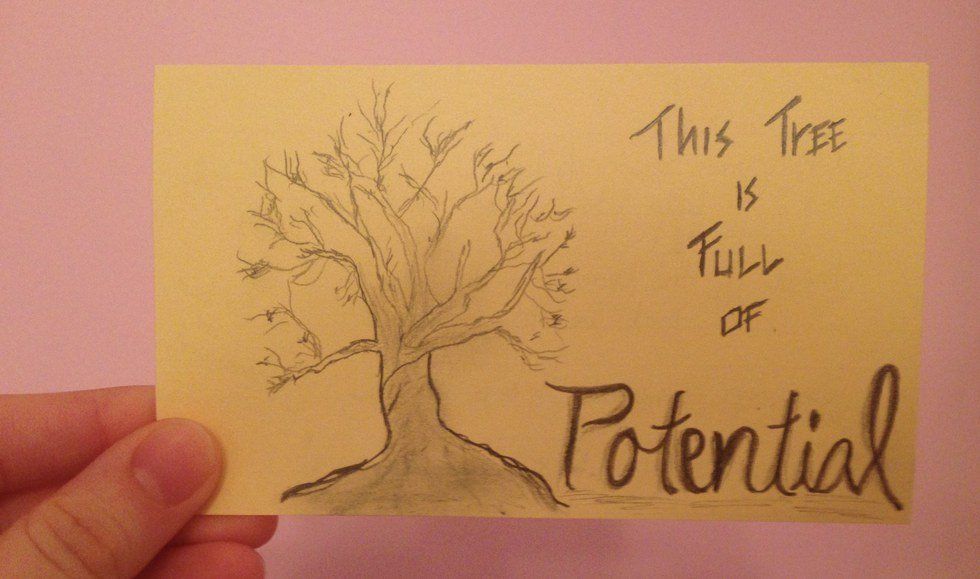 This Tree
is
Full
of
Potential